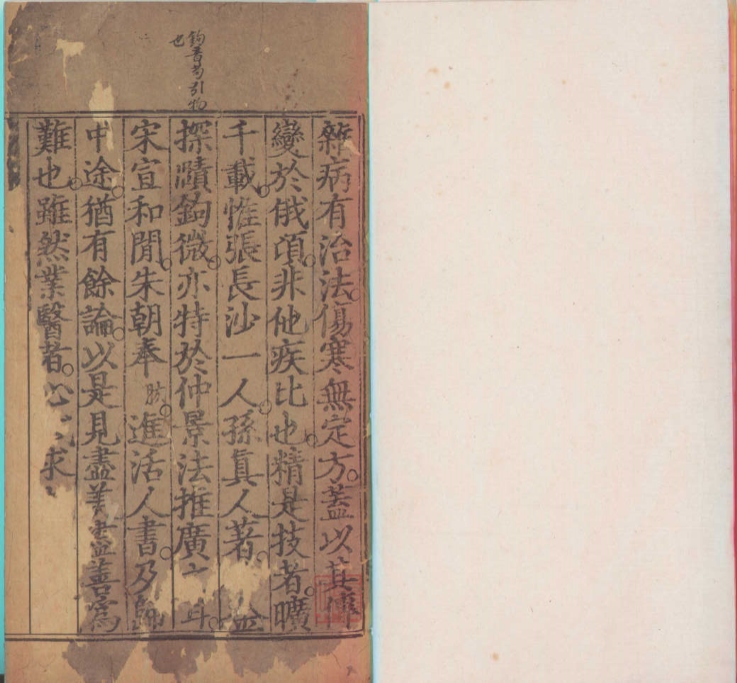 鉤音勾引物
也
雜病有治法傷寒無定方蓋以其傳
變於俄頃非他疾比也精是技者曠
千載惟張長沙一人孫眞人著
探賾鉤微亦特於仲景法推廣耳
宋宣和閒朱朝奉肱進活人書乃歸
中途猶有餘論以是見盡美盡善爲
難也雖然業醫者心求